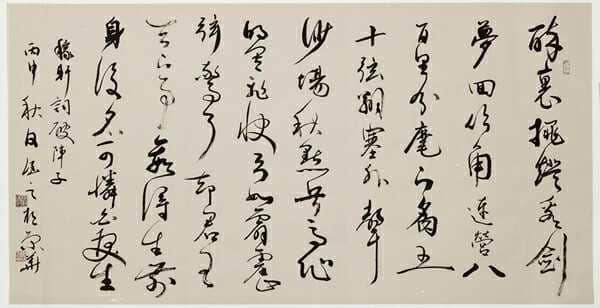 醉裏挑燈看劍
夢回吹角連營八
百里分麾下炙五
十弦翻塞外聲
沙場秋點兵馬作
的盧飛快弓如霹靂
弦驚了卻君王
天下事贏得生前
身後名可憐白髮生
稼軒詞破陣子
丙申秋日於京華